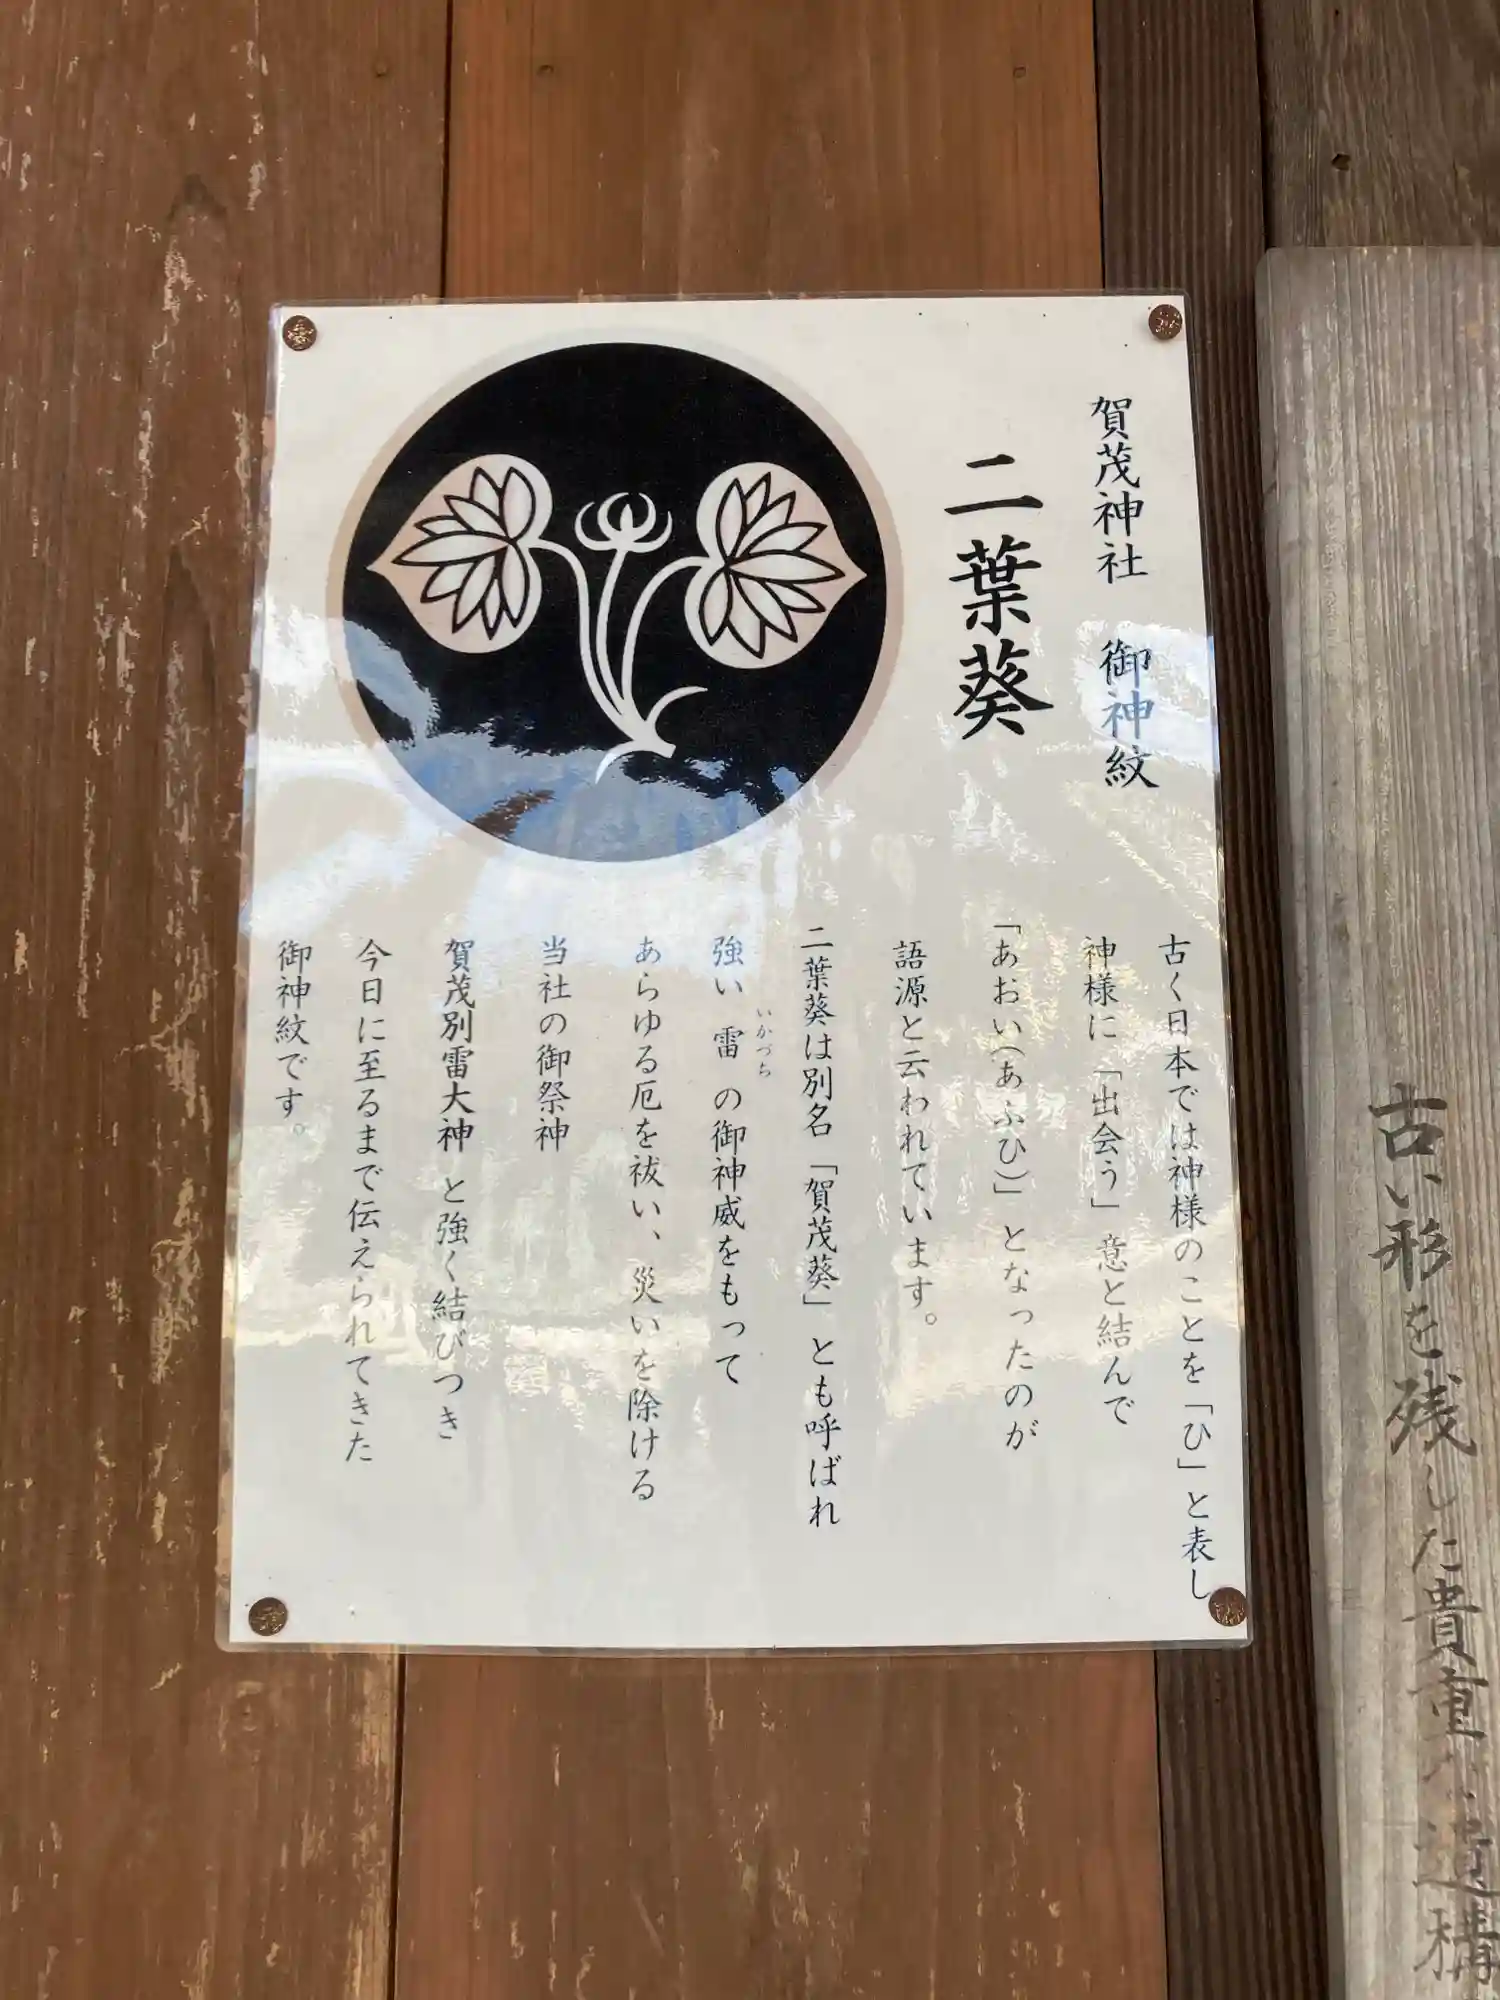 賀茂神社 御神紋
二葉葵
古く日本では神様のことを「ひ」と表し
神様に「出会う」意と結んで
「あおい(あふひ)」となったのが
語源と云われています。
二葉葵は別名「賀茂葵」とも呼ばれ
いかづち
強い雷の御神威をもって
あらゆる厄を祓い、災いを除ける
当社の御祭神
賀茂別雷大神と強く結びつき
今日に至るまで伝えられてきた
御神紋です。
古い形を残した貴重な遺構